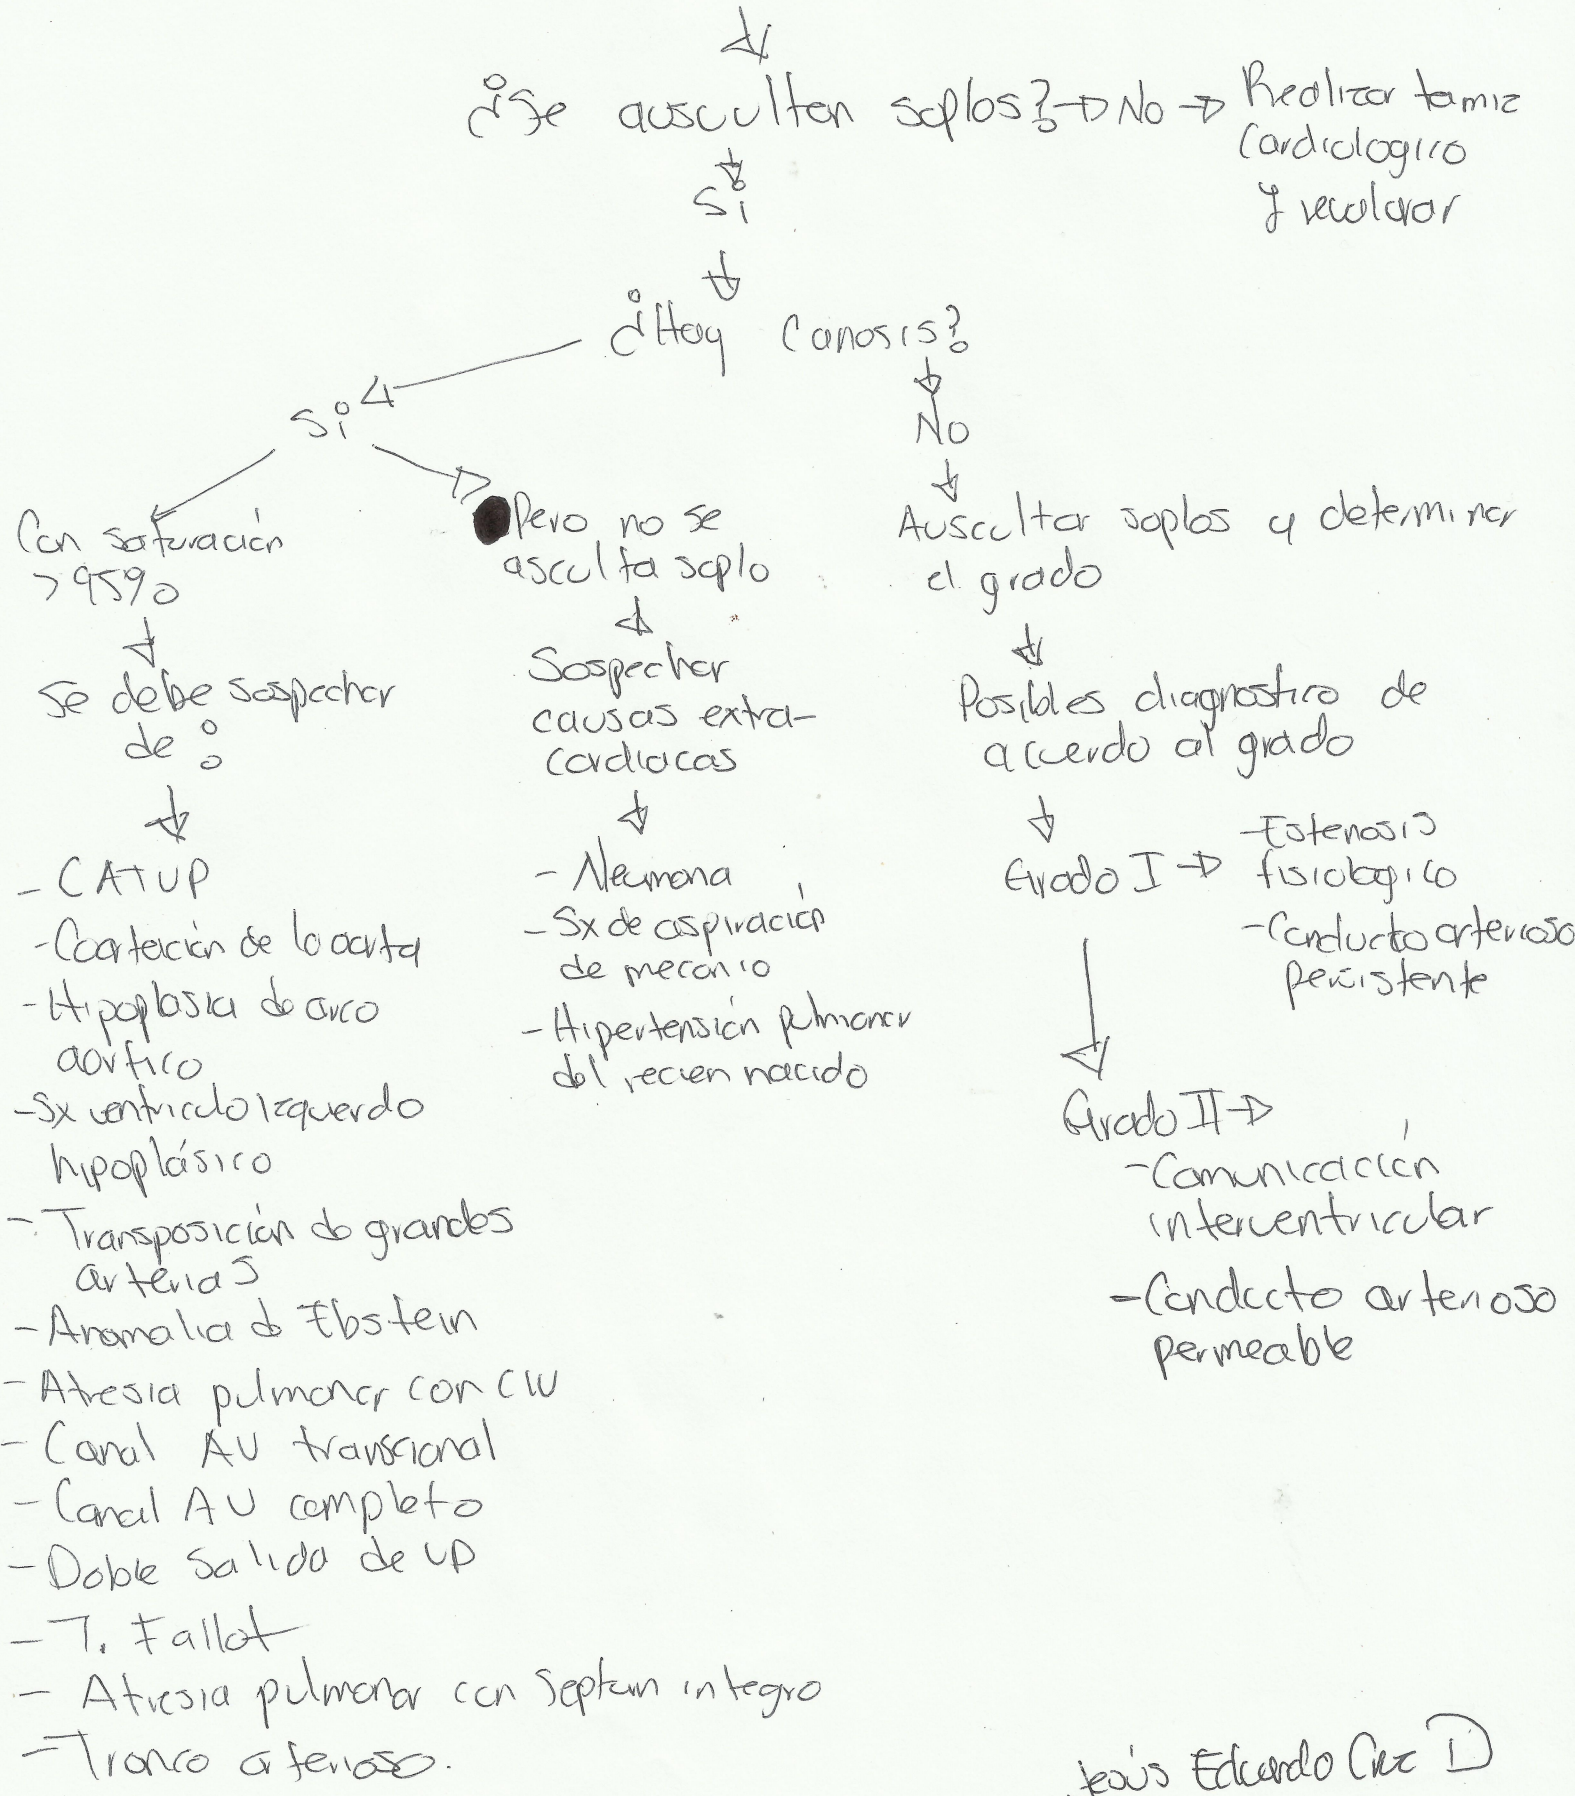 ¿Se auscultan soplos? → No → Realizar tamiz
Cardiologico
y revalorar
Si
¿Hay Cianosis?
Si
No
Con saturación
>95%
Se debe sospechar
de :
- CATVP
- Coartación de la aorta
- Hipoplasia de arco
aortico
- Sx ventriculo Izquerdo
hipoplásico
- Transposición de grandes
arterias
- Anomalia de Ebstein
- Atresia pulmonar con CIV
- Canal AV transcional
- Canal AV completo
- Doble Salida de VD
- T. Fallot
- Atresia pulmonar con Septum integro
- Tronco arterioso.
Pero no se
asculta soplo
Sospechar
causas extra-
cardiacas
- Neumona
- Sx de aspiración
de meconio
- Hipertensión pulmonar
del recien nacido
Auscultar soplos y determinar
el grado
Posibles diagnostico de
acuerdo al grado
Grado I → - Estenosis
fisiologico
- Conducto arterioso
persistente
Grado II →
- Comunicación
interventricular
- Conducto arterioso
permeable
Jesús Eduardo Cruz D